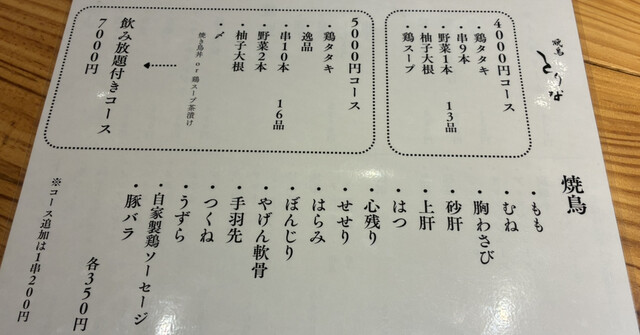 焼鳥 とりな
4000円コース
・鶏タタキ
・串9本 13品
・野菜1本
・柚子大根
・鶏スープ
5000円コース
・鶏タタキ
・逸品
・串10本 16品
・野菜2本
・柚子大根
・〆
焼き鳥丼 or 鶏スープ茶漬け
飲み放題付きコース
7000円
焼鳥
・もも
・むね
・胸わさび
・砂肝
・上肝
・はつ
・心残り
・せせり
・はらみ
・ぼんじり
・やげん軟骨
・手羽先
・つくね
・うずら
・自家製鶏ソーセージ
・豚バラ
各350円
※コース追加は1串200円